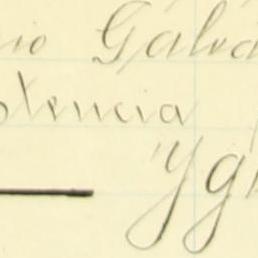 io Galva
stencia
"Yg